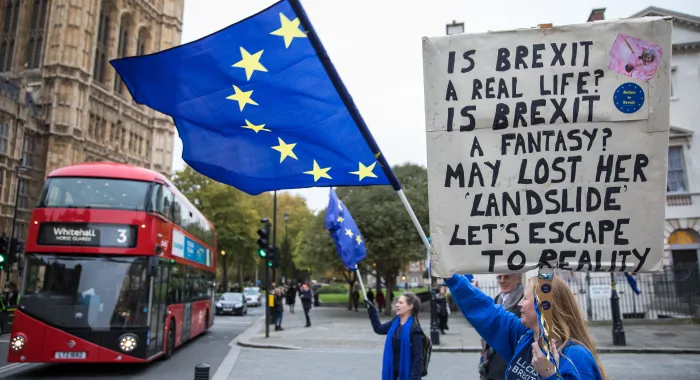 IS BREXIT
A REAL LIFE?
IS BREXIT
A FANTASY?
MAY LOST HER
'LANDSLIDE'
LET'S ESCAPE
TO REALITY
Whitehall
HORSE GUARDS
3